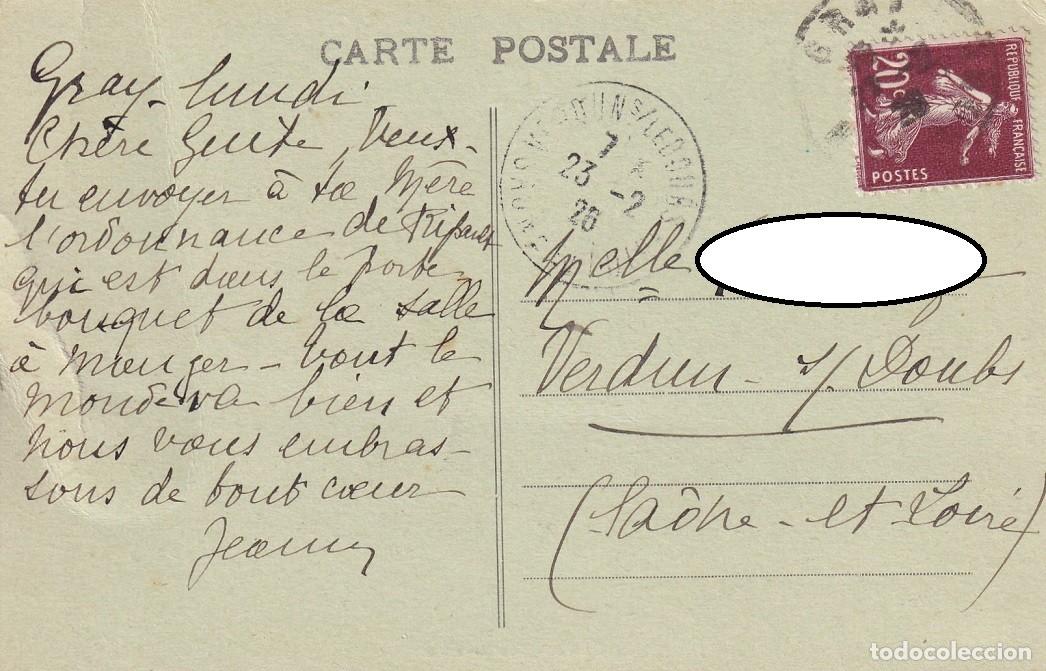 CARTE POSTALE
Gray - lundi
Chère Guite, Veux-
tu envoyer à ta Mère
l'ordonnance de Ripault
qui est dans le porte
bouquet de la salle
à manger - tout le
monde va bien et
nous vous embras-
sons de tout cœur
Jeanny
GRAY
20c
REPUBLIQUE FRANÇAISE
POSTES
VERDUN S/LE DOUBS
7
23 -2
26
Melle
Verdun - s/ Doubs
(Saône - et Loire)
todocoleccion